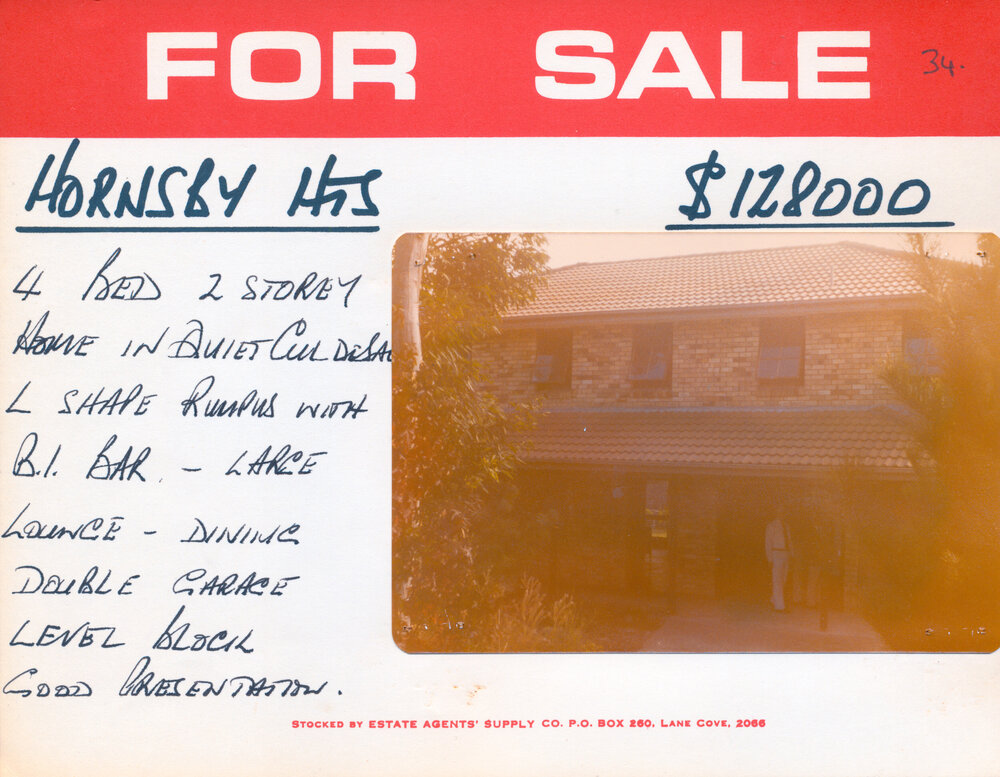 FOR SALE
34.
HORNSBY HTS
$128000
4 BED 2 STOREY
HOME IN QUIET CUL DESAC
L SHAPE RUMPUS WITH
B.I. BAR. - LARGE
LOUNGE - DINING
DOUBLE GARAGE
LEVEL BLOCK
GOOD PRESENTATION.
STOCKED BY ESTATE AGENTS' SUPPLY CO. P.O. BOX 260, LANE COVE, 2066